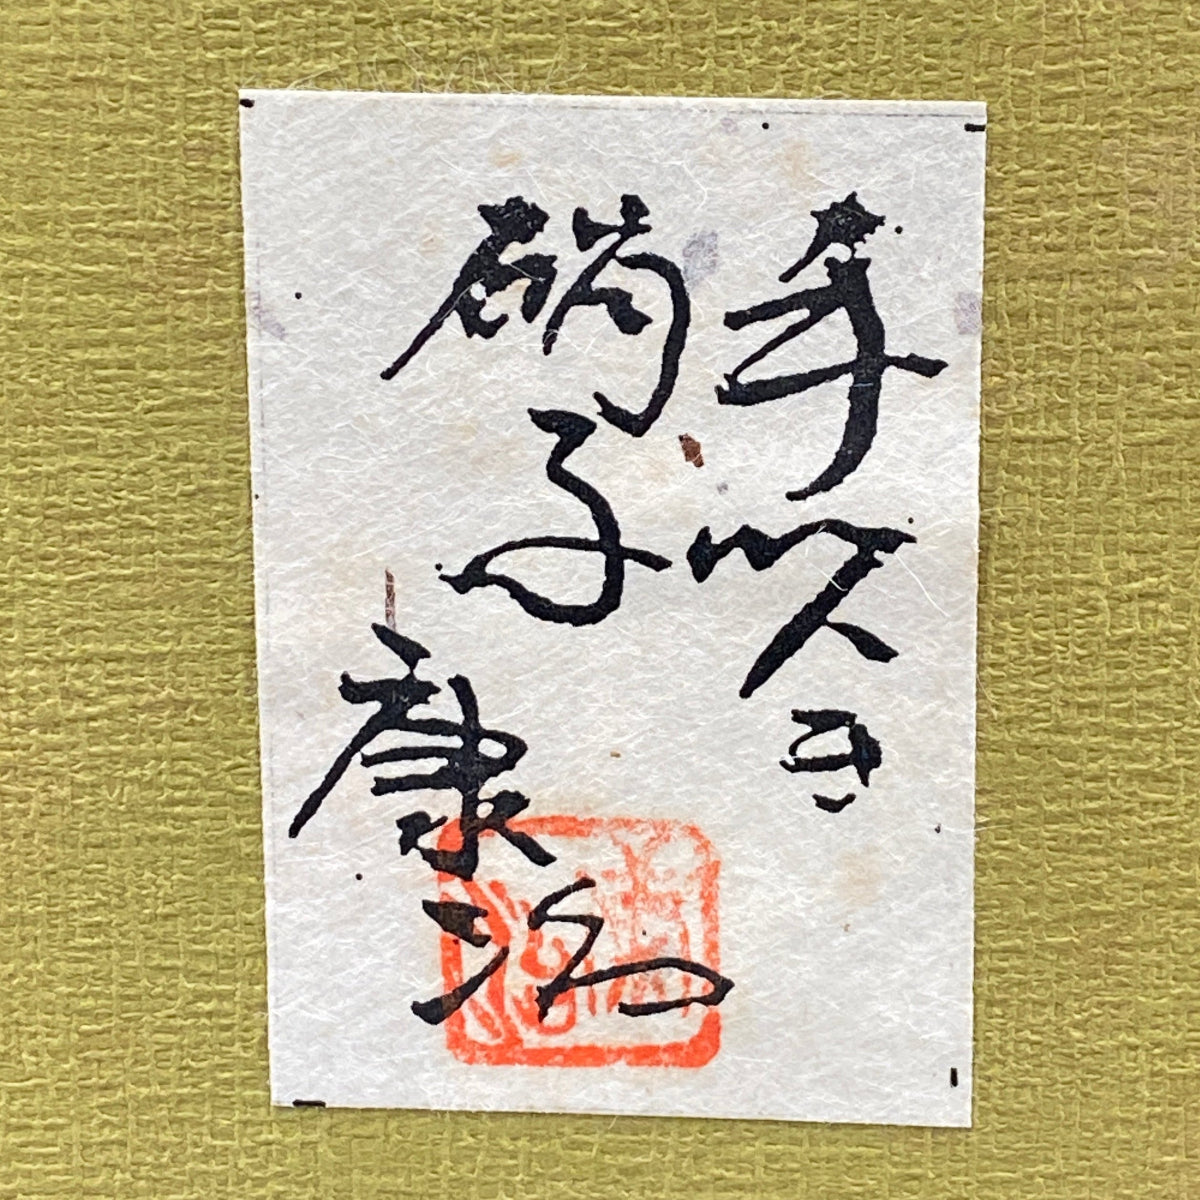 手吹き
硝子
康治